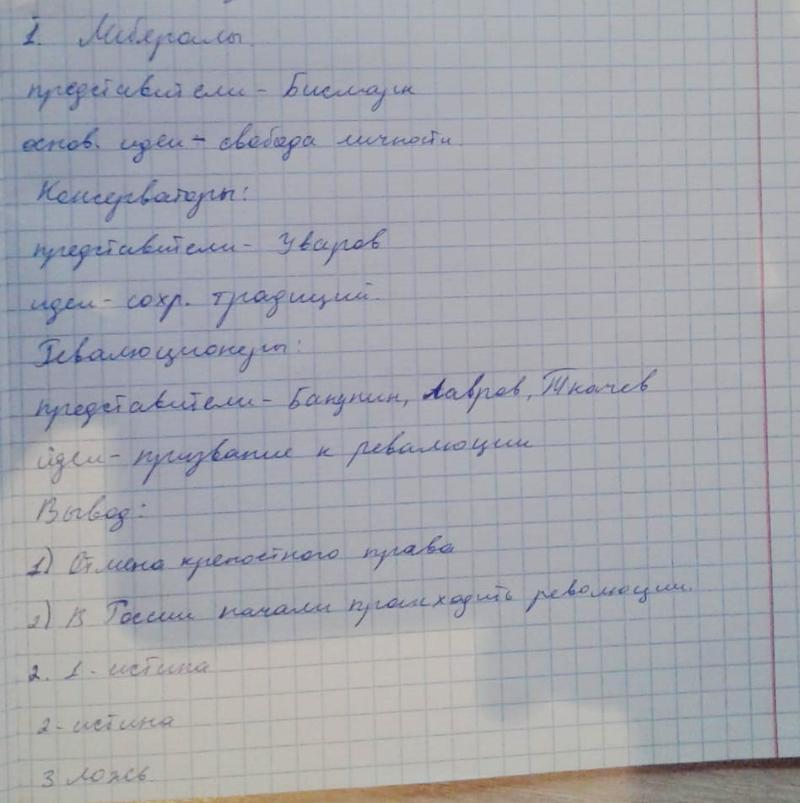 1. Либералы.
представители - Бисмарк
основ. идеи - свобода личности.
Консерваторы:
представители - Уваров
идеи - сохр. традиций.
Революционеры:
представители - Бакунин, Лавров, Ткачев
идеи - призвание к революции
Вывод:
1) Отмена крепостного права
2) В России начали происходить революции.
2. 1 - истина
2 - истина
3 ложь.